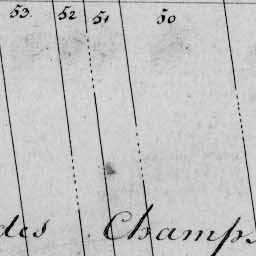 53. 52 51 50
des Champs